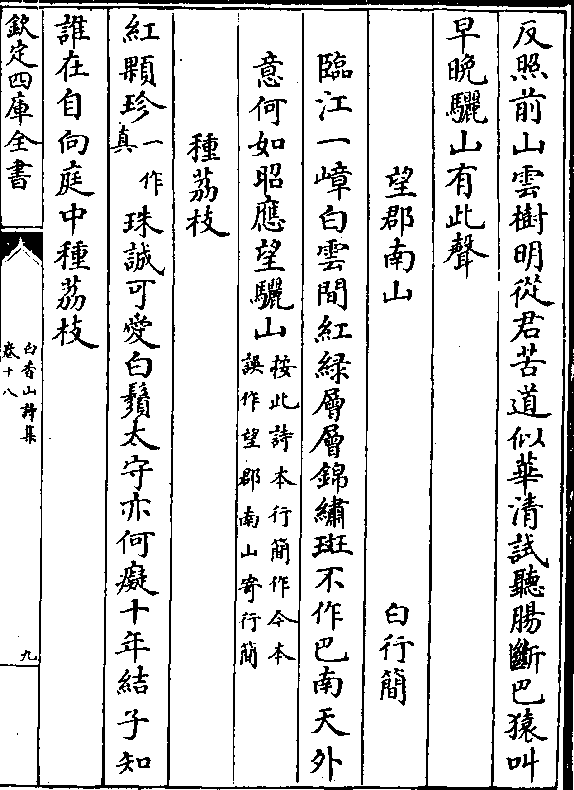 反照前山雲樹明從君苦道似華清試聽腸斷巴猿叫
早晚驪山有此聲
望郡南山 白行簡
臨江一嶂白雲間紅緑層層錦繡斑不作巴南天外
意何如昭應望驪山按此詩本行簡作今本
誤作望郡南山寄行簡
種荔枝
紅顆珍一作
真珠誠可愛白鬚太守亦何癡十年結子知
誰在自向庭中種荔枝
欽定四庫全書
白香山詩集
卷十八
九